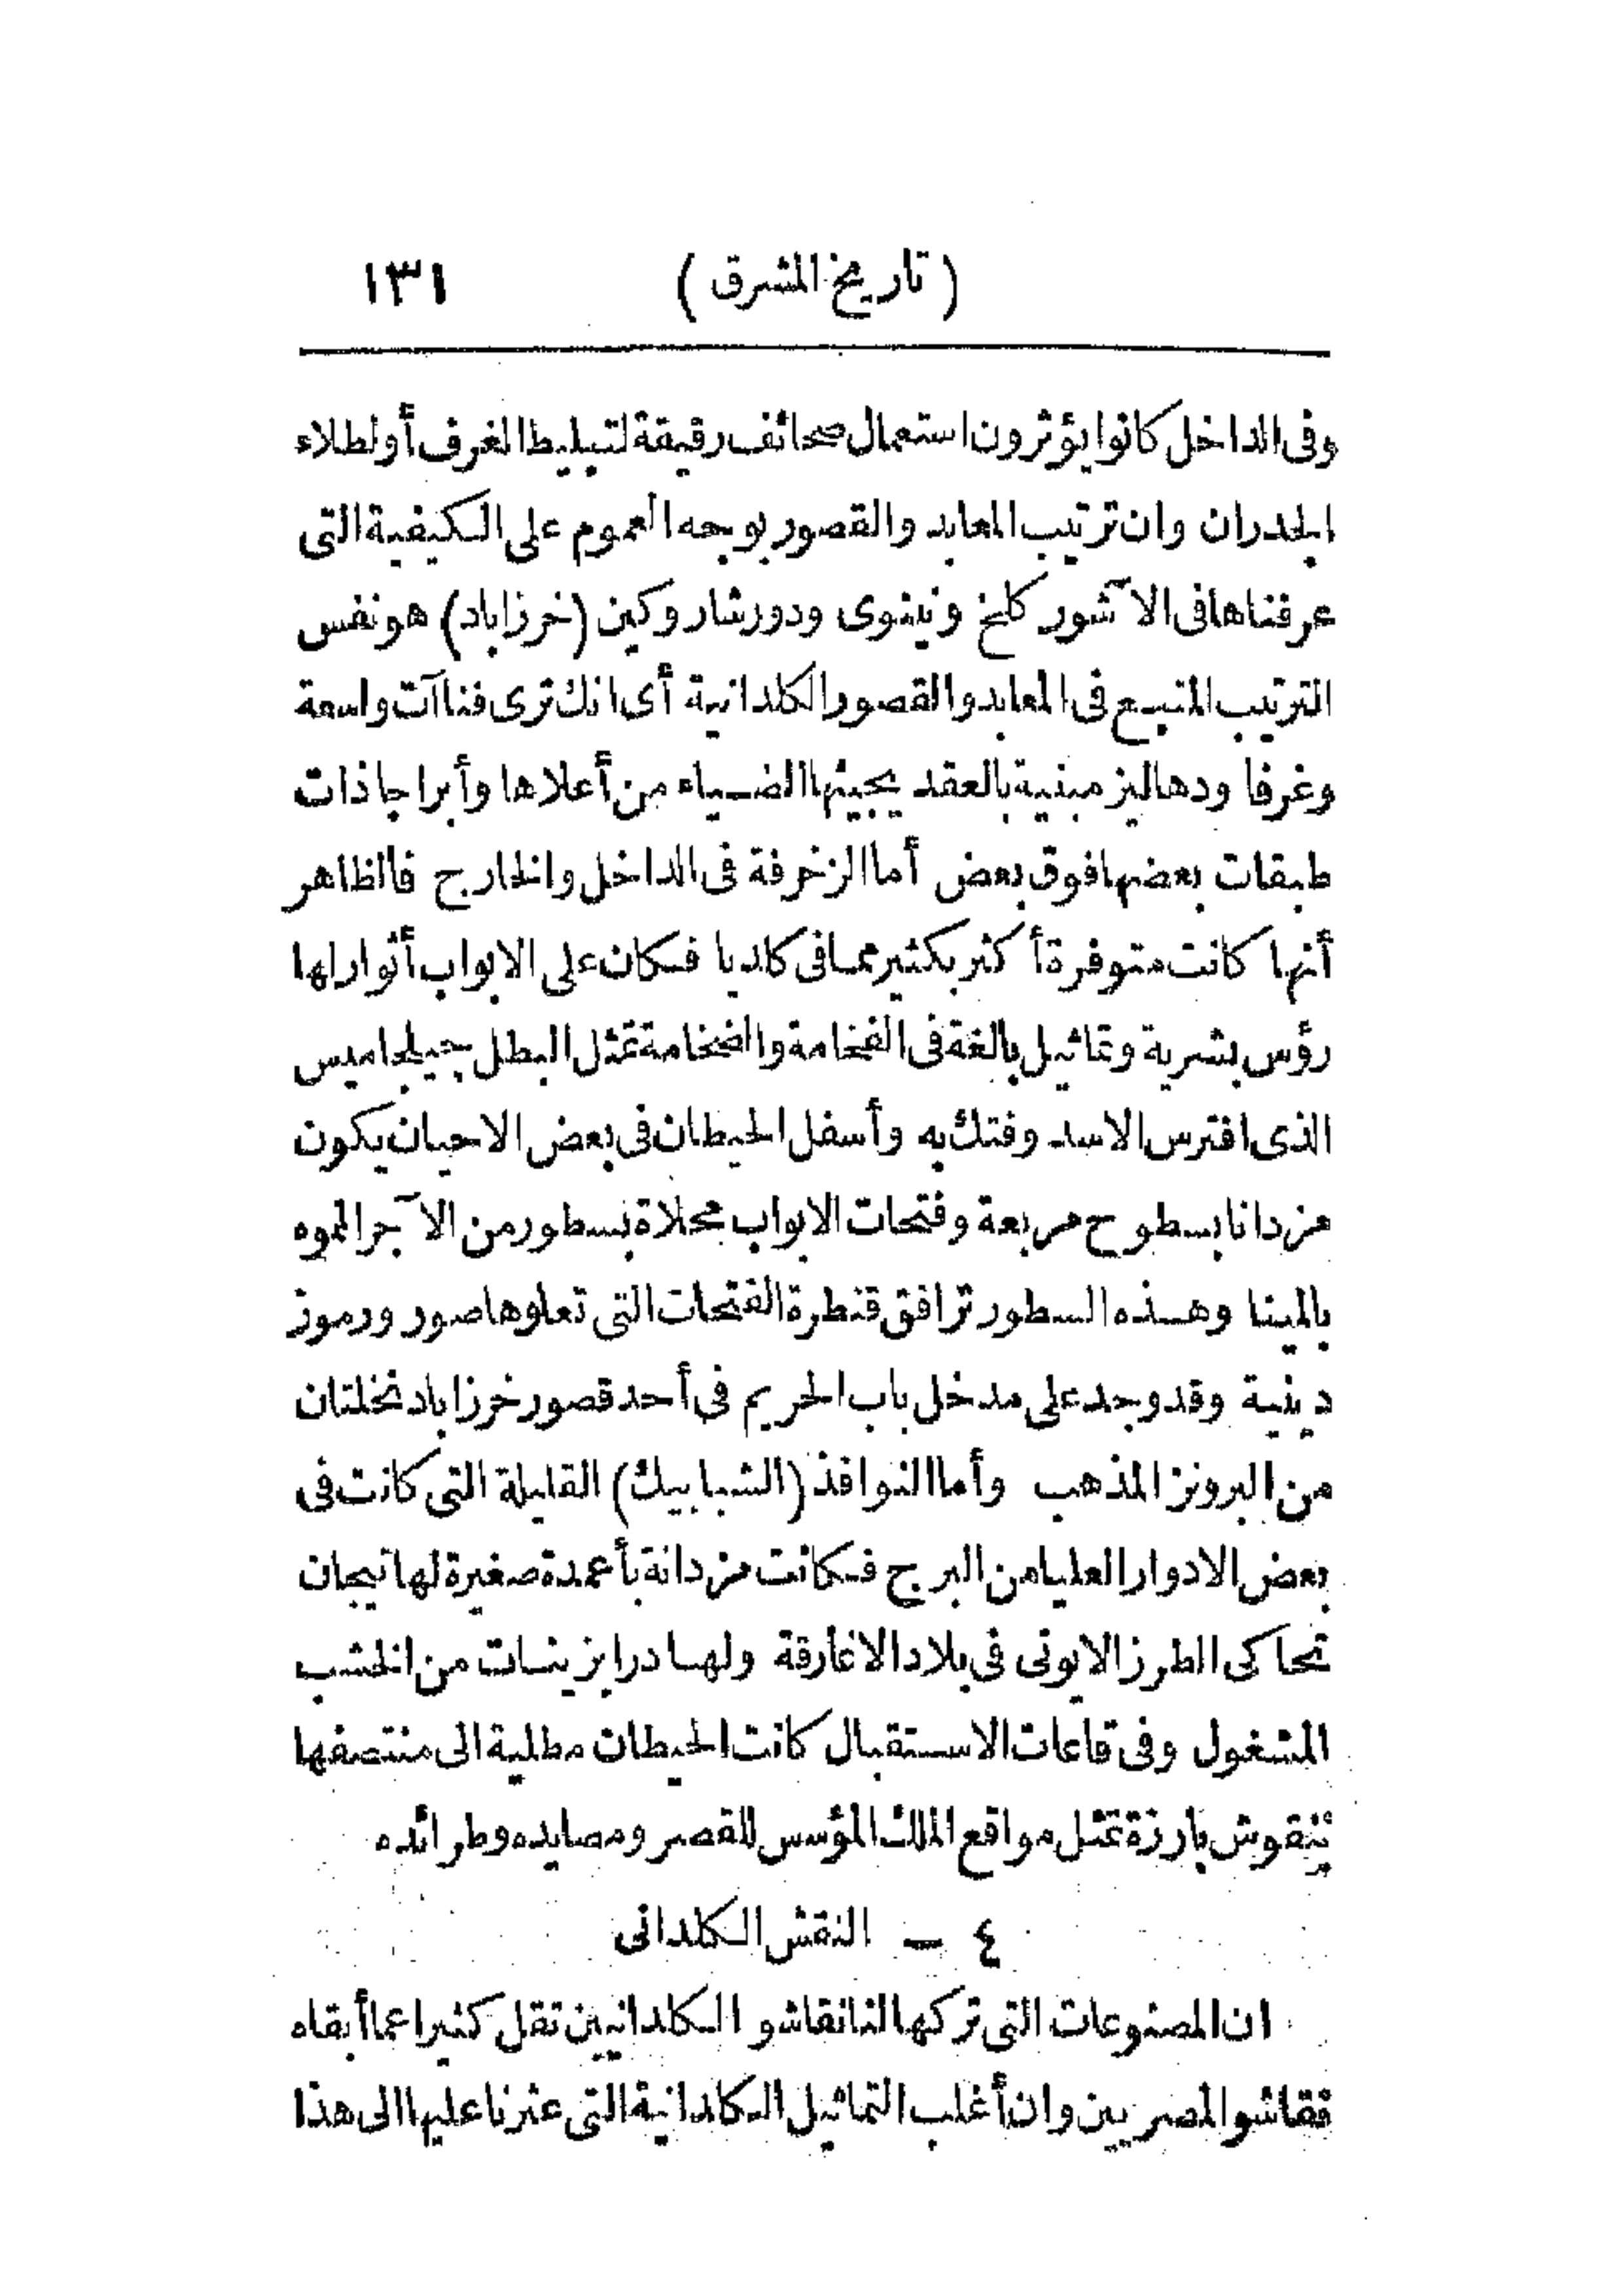 (تاريخ المشرق) ١٣١
وفى الداخل كانوا يؤثرون استعمال صحائف رقيقة لتبليط الغرف أو لطلاء
الجدران وان ترتيب المعابد والقصور بوجه العموم على الكيفية التى
عرفناها فى الآشور كلخ ونينوى ودور شاروكين (خرزاباد) هو نفس
الترتيب المتبع فى المعابد والقصور الكلدانية أى انك ترى فناآت واسعة
وغرفا ودهاليز مبنية بالعقد يجيئها الضياء من أعلاها وأبراجا ذات
طبقات بعضها فوق بعض أما الزخرفة فى الداخل والخارج فالظاهر
أنها كانت متوفرة أكثر بكثير مما فى كلديا فكان على الابواب أثوار لها
رؤس بشرية وتماثيل بالغة فى الفخامة والضخامة تمثل البطل جيلجاميس
الذى افترس الاسد وفتك به وأسفل الحيطان فى بعض الاحيان يكون
مزدانا بسطوح مربعة وفتحات الابواب محلاة بسطور من الآجر المموه
بالمينا وهذه السطور ترافق قنطرة الفتحات التى تعلوها صور ورموز
دينية وقد وجد على مدخل باب الحريم فى أحد قصور خرزاباد نخلتان
من البرونز المذهب وأما النوافذ (الشبابيك) القليلة التى كانت فى
بعض الادوار العليا من البرج فكانت مزدانة بأعمدة صغيرة لها تيجان
تحاكى الطرز الايونى فى بلاد الاغارقة ولها درابزينات من الخشب
المشغول وفى قاعات الاستقبال كانت الحيطان مطلية الى منتصفها
بنقوش بارزة تمثل مواقع الملك المؤسس للقصر ومصايده وطرائده
٤ — النقش الكلدانى
ان المصنوعات التى تركها لنا نقاشو الكلدانيين تقل كثيرا عما أبقاه
نقاشو المصريين وان أغلب التماثيل الكلدانية التى عثرنا عليها الى هذا